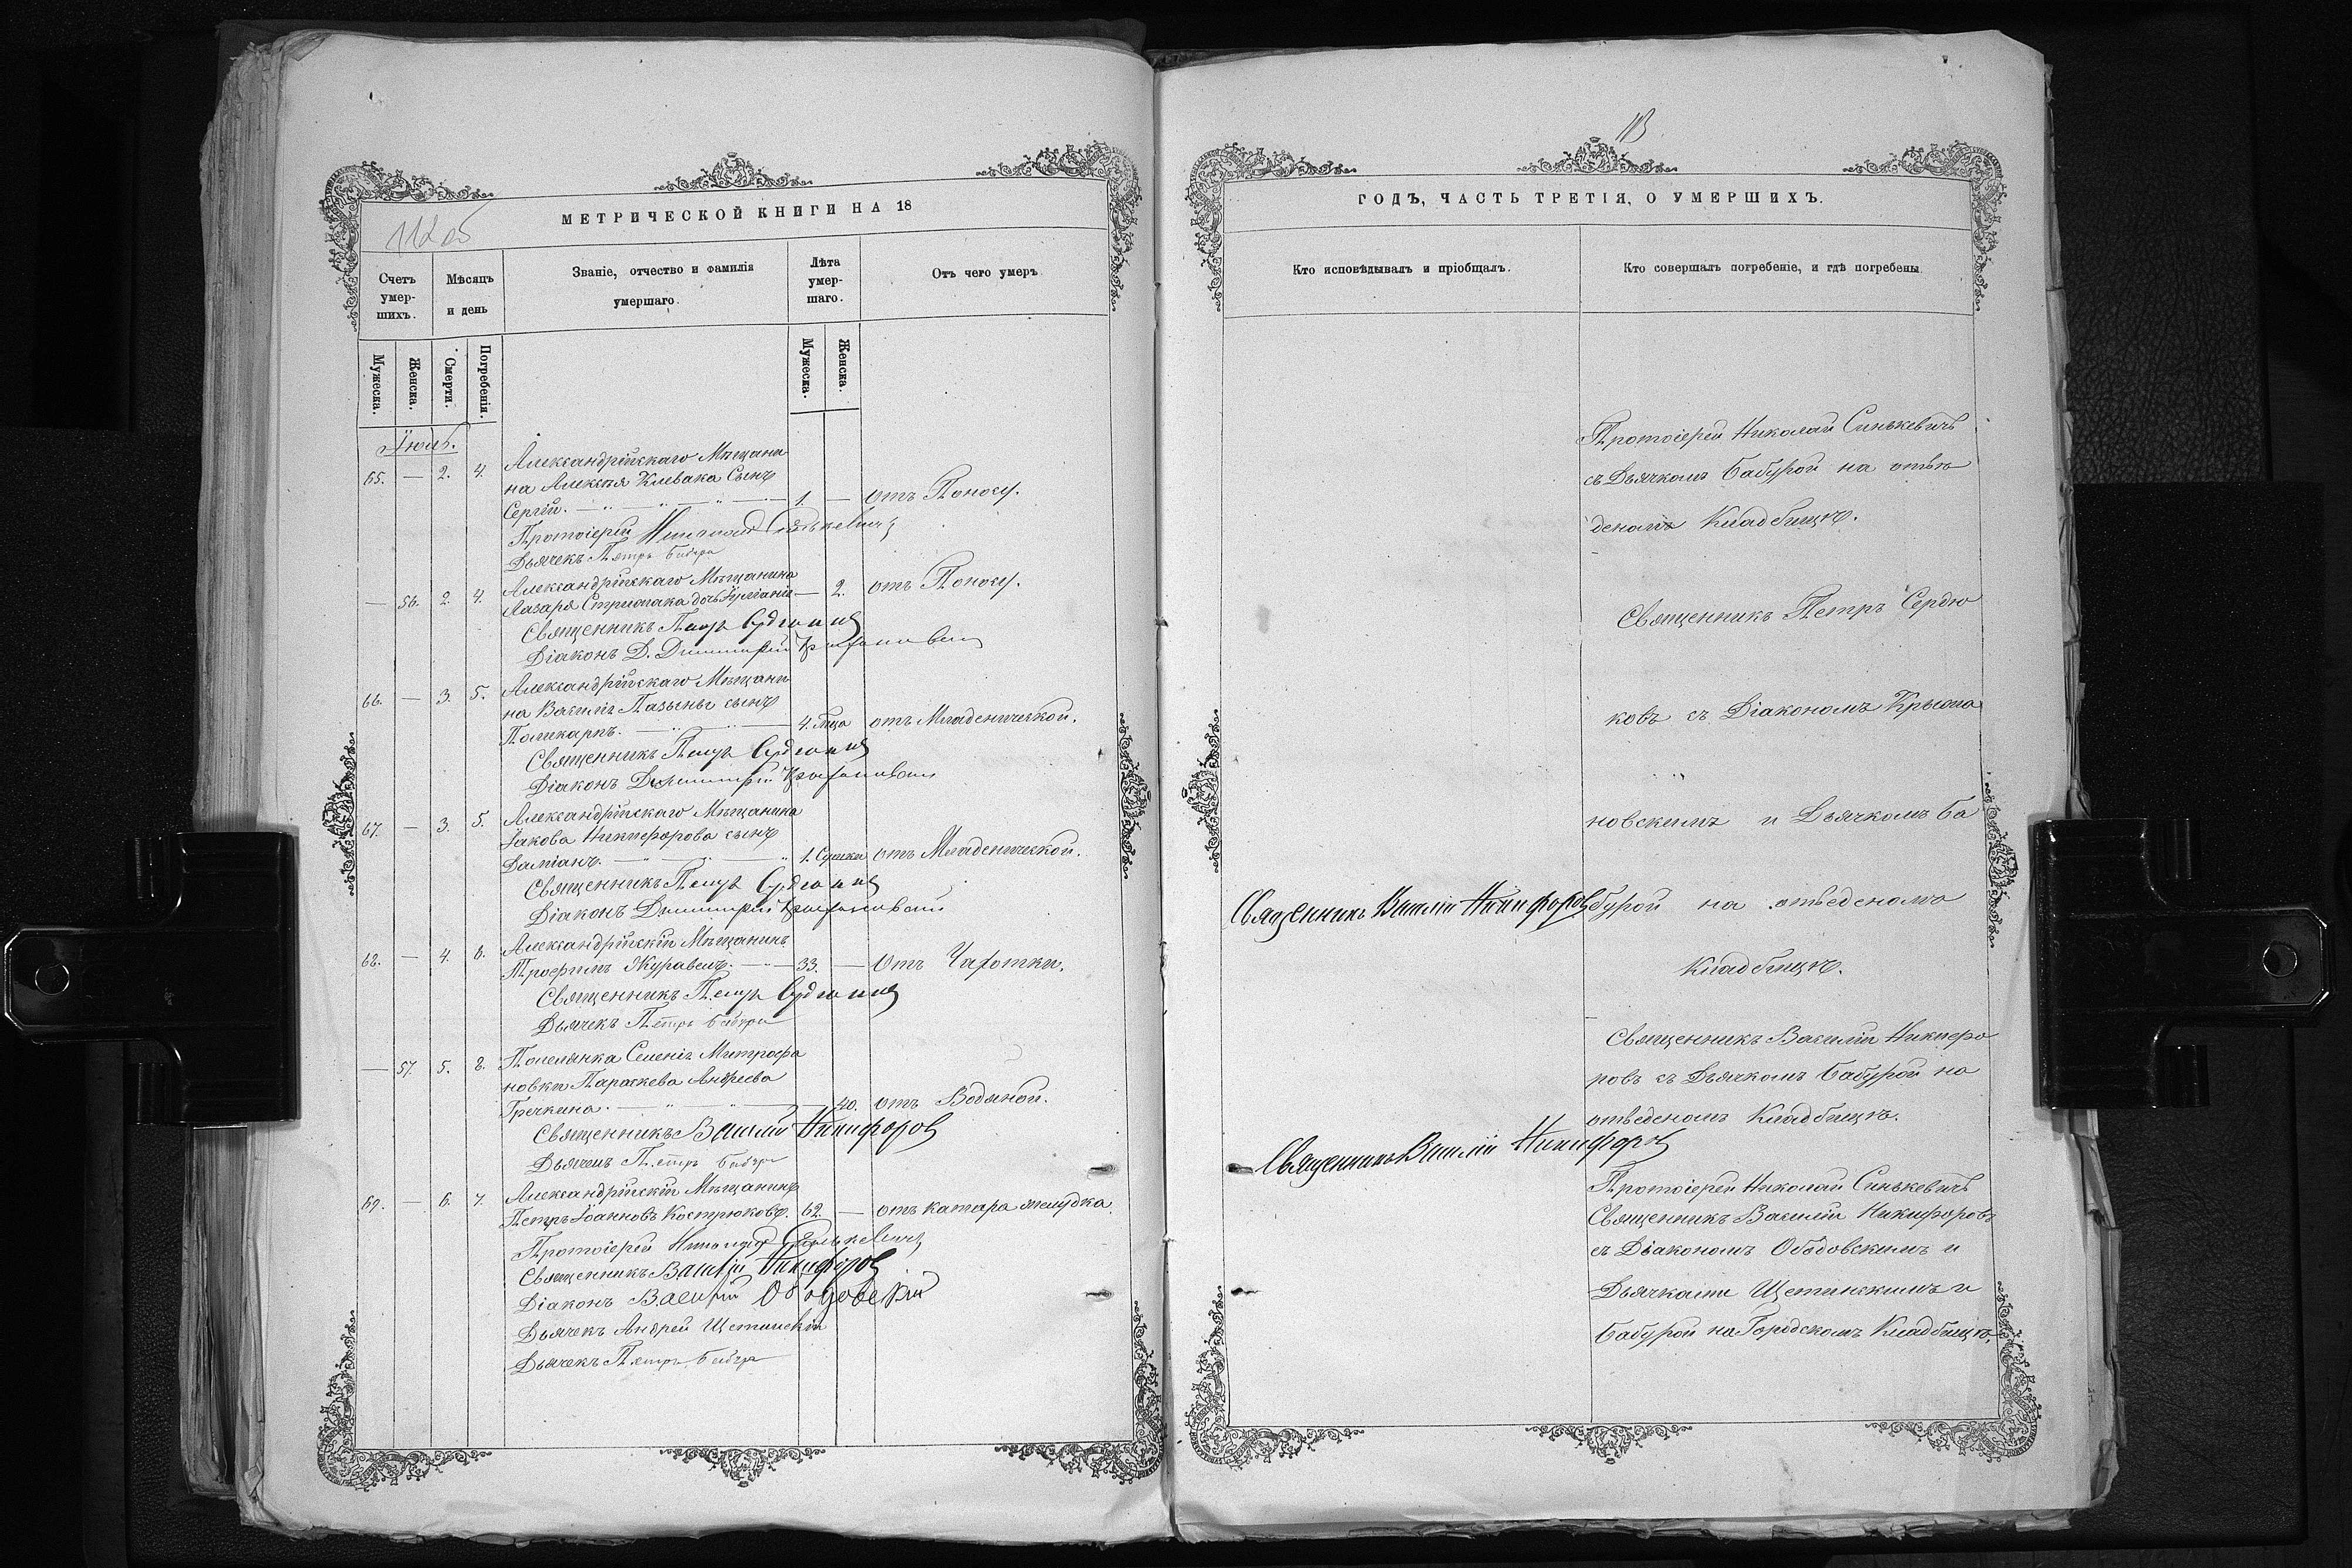 112 об
МЕТРИЧЕСКОЙ КНИГИ НА 18
Счетъ умер-шихъ.
Мѣсяцъ и день
Званіе, отчество и фамилія умершаго.
Лѣта умер-шаго.
Отъ чего умеръ
Мужеска.
Женска.
Смерти.
Погребенія.
Мужеска.
Женска.
Іюль.
Александрійскаго Мѣщани
65. — 2. 4. на Алексѣя Клевака Сынъ
Сергій. — 1. — отъ Поносу.
Протоіерей Николай Синькевичъ
Дьячекъ Петръ Бабура
Александрійскаго Мѣщанина
— 56. 2. 4. Лазаря дочь — 2. отъ Поносу.
Священникъ Петръ Сердюковъ
Діаконъ Д. Димитрій Крыжановскій
Александрійскаго Мѣщани
66. — 3. 5. на Василія сынъ
Поликарпъ. — 4. Мца отъ Младенческой.
Священникъ Петръ Сердюковъ
Діаконъ Димитрій Крыжановскій
Александрійскаго Мѣщанина
67. — 3. 5. Іакова Никифорова сынъ
Даміанъ. — 1. отъ Младенческой.
Священникъ Петръ Сердюковъ
Діаконъ Димитрій Крыжановскій
Александрійскій Мѣщанинъ
68. — 4. 6. Трофимъ Журавель. — 33. — Отъ Чахотки.
Священникъ Петръ Сердюковъ
Дьячекъ Петръ Бабура
— 57. 5. 8. Поселянка Селенія Митрофа
новки Параскева Андреева
Гречкина. — 40. отъ Водяной.
Священникъ Василій Никифоровъ
Дьячекъ Петръ Бабура
Александрійскій Мѣщанинъ
69. — 6. 7. Петръ Іоанновъ Кострюковъ. 62. — отъ катара желудка.
Протоіерей Николай Синькевичъ
Священникъ Василій Никифоровъ
Діаконъ Василій Ободовскій
Дьячекъ Андрей Щетинскій
Дьячекъ Петръ Бабура
113
ГОДЪ, ЧАСТЬ ТРЕТІЯ, О УМЕРШИХЪ.
Кто исповѣдывалъ и пріобщалъ.
Кто совершалъ погребеніе, и гдѣ погребены
Протоіерей Николай Синькевичъ
съ Дьячкомъ Бабурой на отве
деномъ Кладбищѣ.
Священникъ Петръ Сердю
ковъ съ Діакономъ Крыжа
новскимъ и Дьячкомъ Ба
Священникъ Василій Никифоровъ
бурой на отведеномъ
Кладбищѣ.
Священникъ Василій Никифо
ровъ съ Дьячкомъ Бабурой на
отведеномъ Кладбищѣ.
Священникъ Василій Никифоровъ
Протоіерей Николай Синькевичъ
Священникъ Василій Никифоровъ
съ Діакономъ Ободовскимъ и
Дьячками Щетинскимъ и
Бабурой на Городскомъ Кладбищѣ.